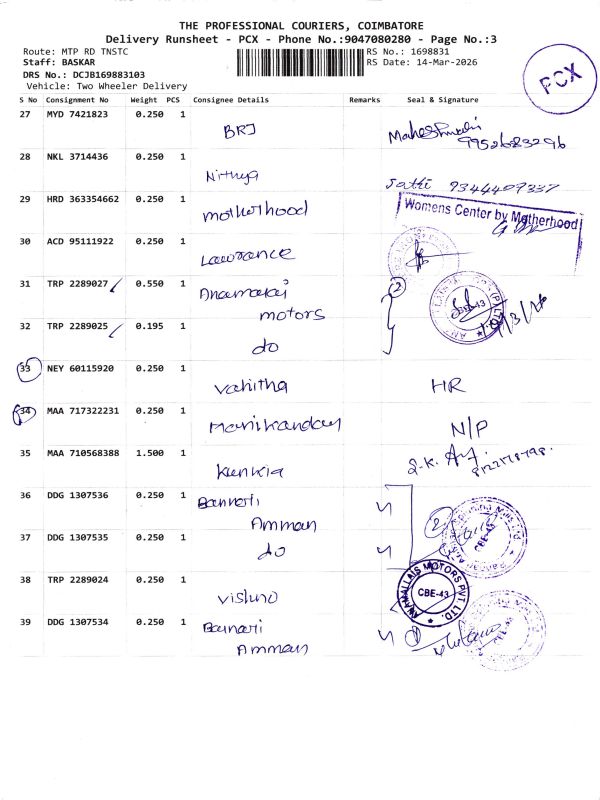 THE PROFESSIONAL COURIERS, COIMBATORE
Delivery Runsheet - PCX - Phone No.:9047080280 - Page No.:3
Route: MTP RD TNSTC
RS No.: 1698831
Staff: BASKAR
RS Date: 14-Mar-2026
DRS No.: DCJB169883103
Vehicle: Two Wheeler Delivery
PCX
S No Consignment No Weight PCS Consignee Details Remarks Seal & Signature
27 MYD 7421823 0.250 1 BRJ Maheshwari
9952683296
28 NKL 3714436 0.250 1 Nithya
Sathi 9344409337
29 HRD 363354662 0.250 1 motherhood
Womens Center by Motherhood
30 ACD 95111922 0.250 1 Lawrance
31 TRP 2289027 0.550 1 Anamalai
motors
2
32 TRP 2289025 0.195 1 do
33 NEY 60115920 0.250 1 Vahitha HR
34 MAA 717322231 0.250 1 Manikandan N/P
35 MAA 710568388 1.500 1
36 DDG 1307536 0.250 1 Bannari
Amman
2
37 DDG 1307535 0.250 1 do
ANAMALLAIS MOTORS PVT LTD.
CBE-43
38 TRP 2289024 0.250 1 Vishno
39 DDG 1307534 0.250 1 Bannari
Amman